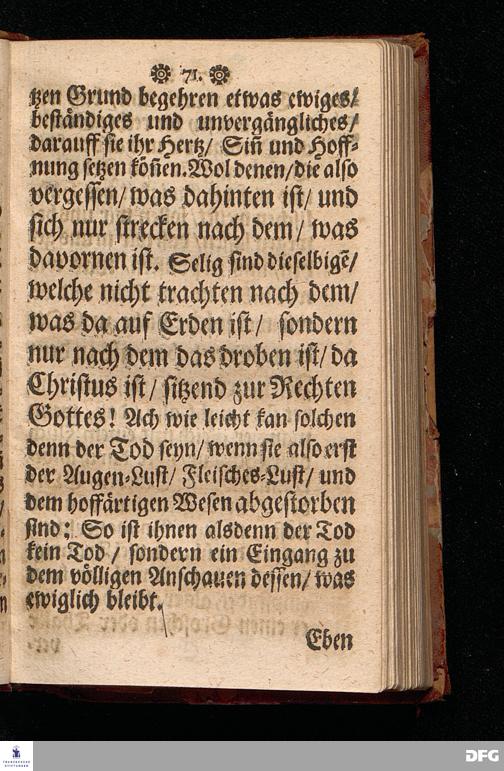 ❁ 71. ❁
tzen Grund begehren etwas ewiges/
beständiges und unvergängliches/
darauff sie ihr Hertz/ Siñ und Hoff-
nung setzen köñen. Wol denen/ die also
vergessen/ was dahinten ist/ und
sich nur strecken nach dem/ was
davornen ist. Selig sind dieselbigẽ/
welche nicht trachten nach dem/
was da auf Erden ist/ sondern
nur nach dem das droben ist/ da
Christus ist/ sitzend zur Rechten
Gottes! Ach wie leicht kan solchen
denn der Tod seyn/ wenn sie also erst
der Augen-Lust/ Fleisches-Lust/ und
dem hoffärtigen Wesen abgestorben
sind: So ist ihnen alsdenn der Tod
kein Tod/ sondern ein Eingang zu
dem völligen Anschauen dessen/ was
ewiglich bleibt.
Eben
FRANCKESCHE
STIFTUNGEN
DFG